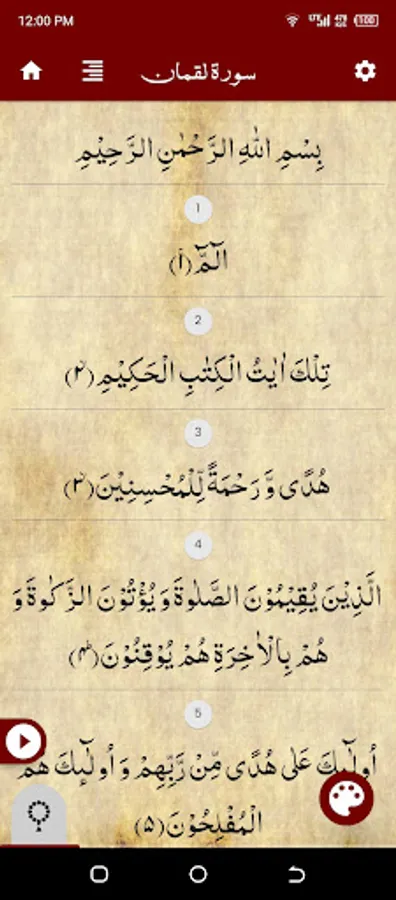 12:00 PM
100
سورة لقمان
بِسْمِ اللهِ الرَّحْمٰنِ الرَّحِيْمِ
1
الٓمّٓ ﴿۱﴾
2
تِلْكَ اٰيٰتُ الْكِتٰبِ الْحَكِيْمِ ﴿۲﴾
3
هُدًى وَّرَحْمَةً لِّلْمُحْسِنِيْنَ ﴿۳﴾
4
الَّذِيْنَ يُقِيْمُوْنَ الصَّلٰوةَ وَيُؤْتُوْنَ الزَّكٰوةَ وَ
هُمْ بِالْاٰخِرَةِ هُمْ يُوْقِنُوْنَ ﴿۴﴾
5
اُولٰٓئِكَ عَلٰى هُدًى مِّنْ رَّبِّهِمْ وَاُولٰٓئِكَ هُمُ
الْمُفْلِحُوْنَ ﴿۵﴾